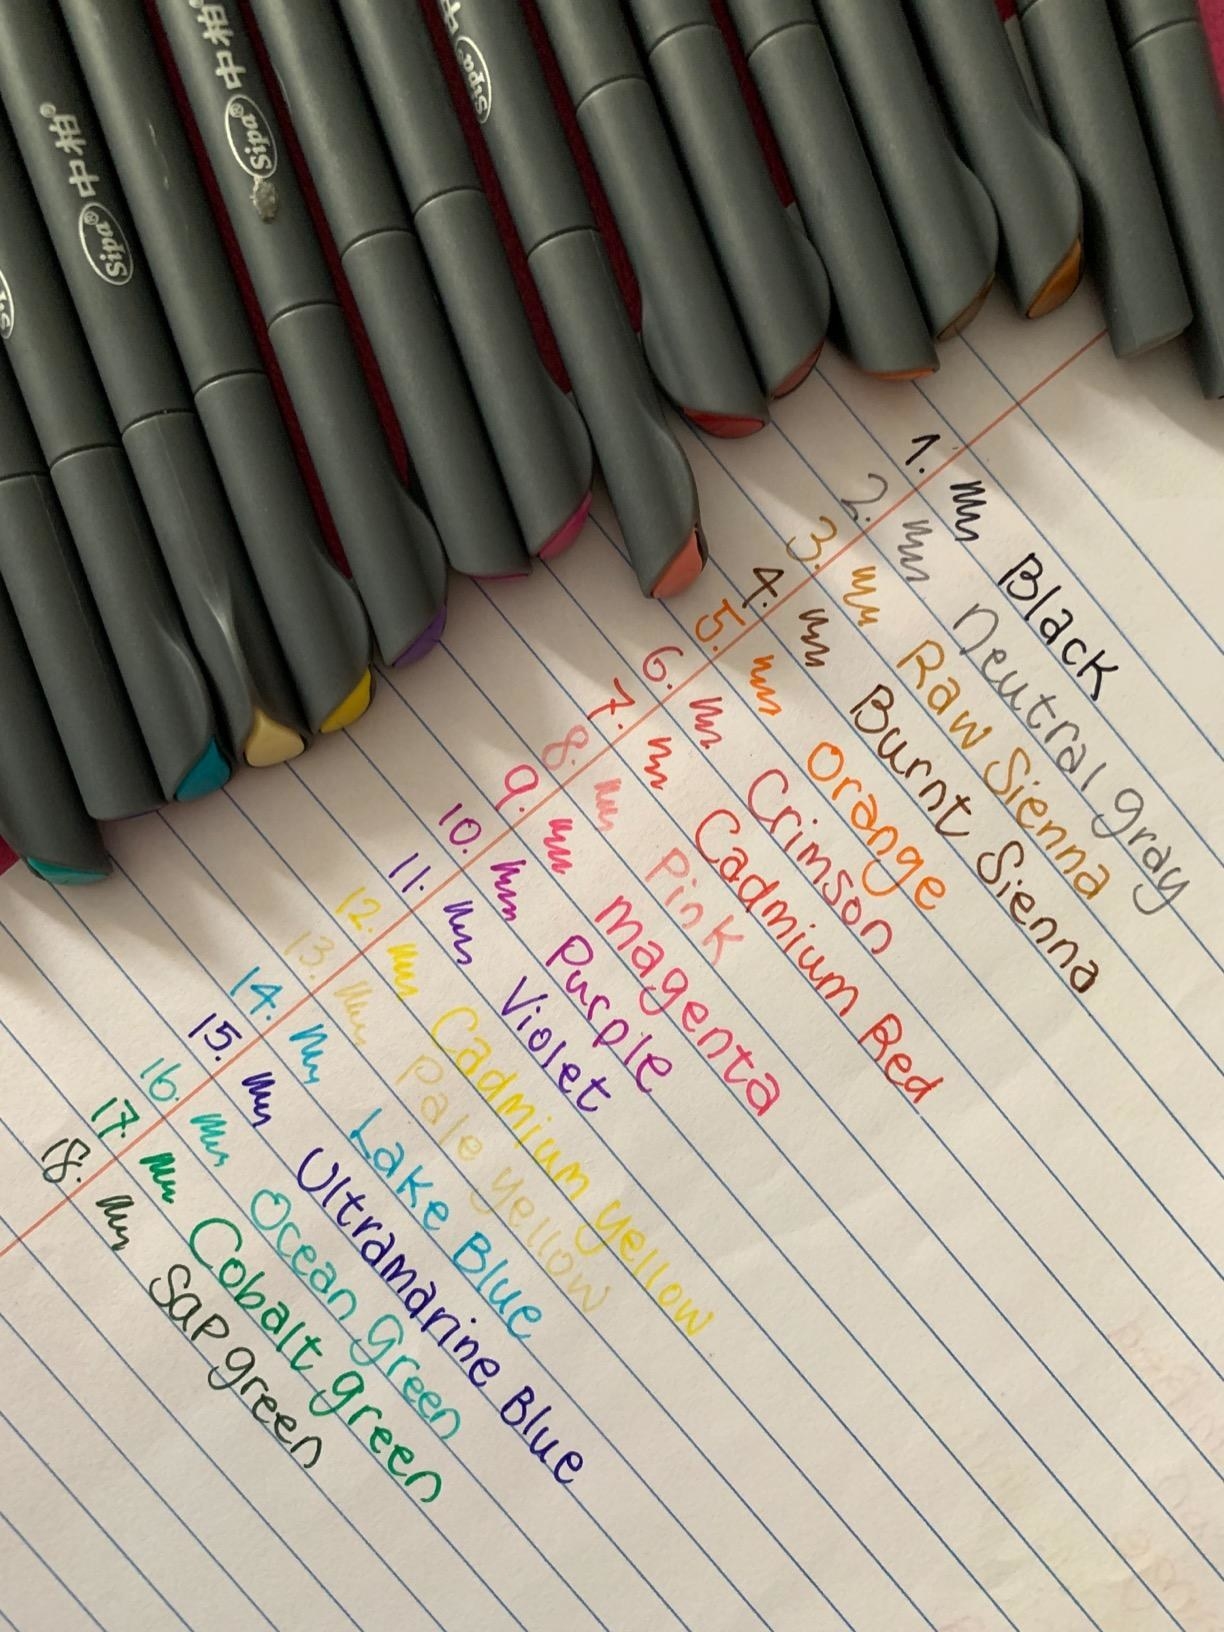 中柏®
Sipa®
中柏®
Sipa®
中
Sipa®
1. Black
2. neutral gray
3. Raw Sienna
4. Burnt Sienna
5. Orange
6. Crimson
7. Cadmium Red
8. Pink
9. magenta
10. Purple
11. Violet
12. Cadmium yellow
13. Pale yellow
14. Lake Blue
15. Ultramarine Blue
16. Ocean green
17. Cobalt green
18. Sap green